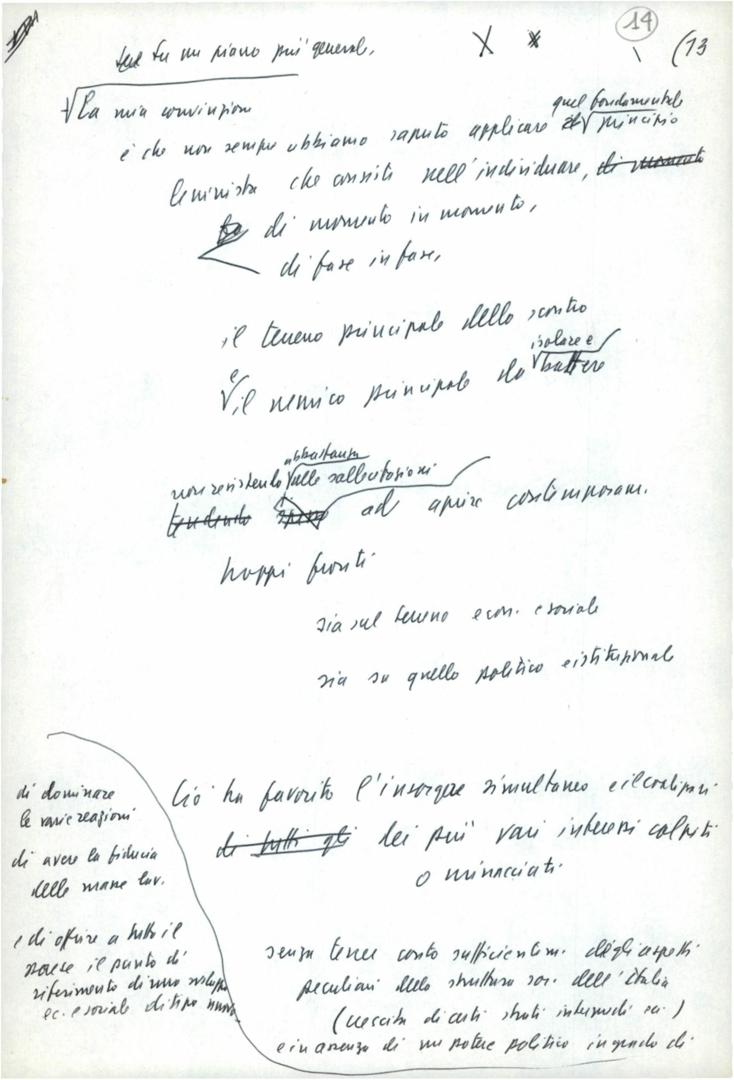 14
(13
Su un piano più general.
La mia convinzione
quel fondamentale
è che non sempre abbiamo saputo applicare il principio
leninista che consiste nell'individuare, di momento
di momento in momento,
di fase in fase,
il terreno principale dello scontro
isolare e
e il nemico principale da battere
abbastanza
non resistendo alle sollecitazioni
tendendo spesso ad aprire contemporaneam.
troppi fronti
sia sul terreno econ. e sociale
sia su quello politico e istituzionale
Ciò ha favorito l'insorgere simultaneo e il coalizzarsi
di tutti gli dei più vari interessi colpiti
o minacciati
senza tener conto sufficientem. degli aspetti
peculiari della struttura soc. dell'Italia
(crescita di certi strati intermedi ecc.)
e in assenza di un potere politico in grado di
di dominare
le varie reazioni
di avere la fiducia
delle masse lav.
e di offrire a tutto il
paese il punto di
riferimento di uno sviluppo
ec. e sociale di tipo nuovo